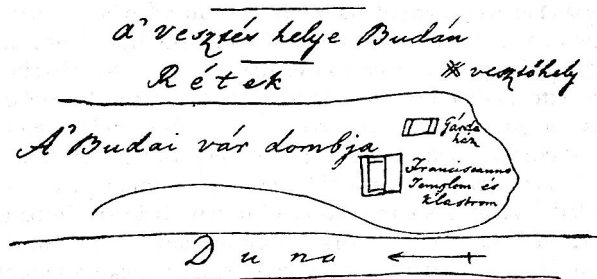 a' vesztés helye Budán
Rétek
vesztőhely
Gárda
ház
A' Budai vár dombja
Franciscanus
Templom és
klastrom
Duna